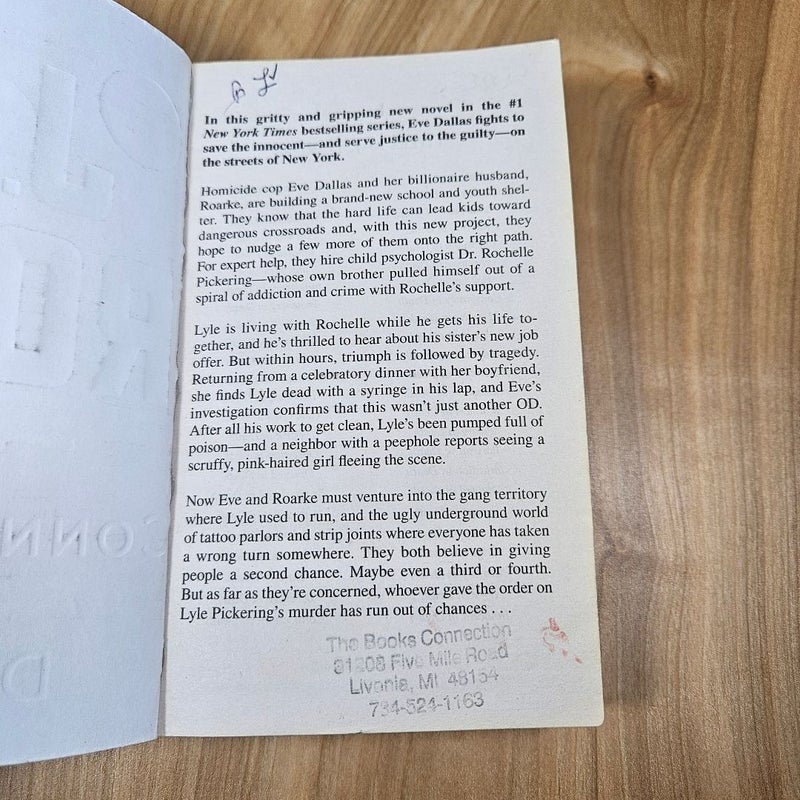 In this gritty and gripping new novel in the #1
New York Times bestselling series, Eve Dallas fights to
save the innocent—and serve justice to the guilty—on
the streets of New York.
Homicide cop Eve Dallas and her billionaire husband,
Roarke, are building a brand-new school and youth shel-
ter. They know that the hard life can lead kids toward
dangerous crossroads and, with this new project, they
hope to nudge a few more of them onto the right path.
For expert help, they hire child psychologist Dr. Rochelle
Pickering—whose own brother pulled himself out of a
spiral of addiction and crime with Rochelle's support.
Lyle is living with Rochelle while he gets his life to-
gether, and he's thrilled to hear about his sister's new job
offer. But within hours, triumph is followed by tragedy.
Returning from a celebratory dinner with her boyfriend,
she finds Lyle dead with a syringe in his lap, and Eve's
investigation confirms that this wasn't just another OD.
After all his work to get clean, Lyle's been pumped full of
poison—and a neighbor with a peephole reports seeing a
scruffy, pink-haired girl fleeing the scene.
Now Eve and Roarke must venture into the gang territory
where Lyle used to run, and the ugly underground world
of tattoo parlors and strip joints where everyone has taken
a wrong turn somewhere. They both believe in giving
people a second chance. Maybe even a third or fourth.
But as far as they're concerned, whoever gave the order on
Lyle Pickering's murder has run out of chances . . .
The Books Connection
31208 Five Mile Road
Livonia, MI 48154
734-524-1163